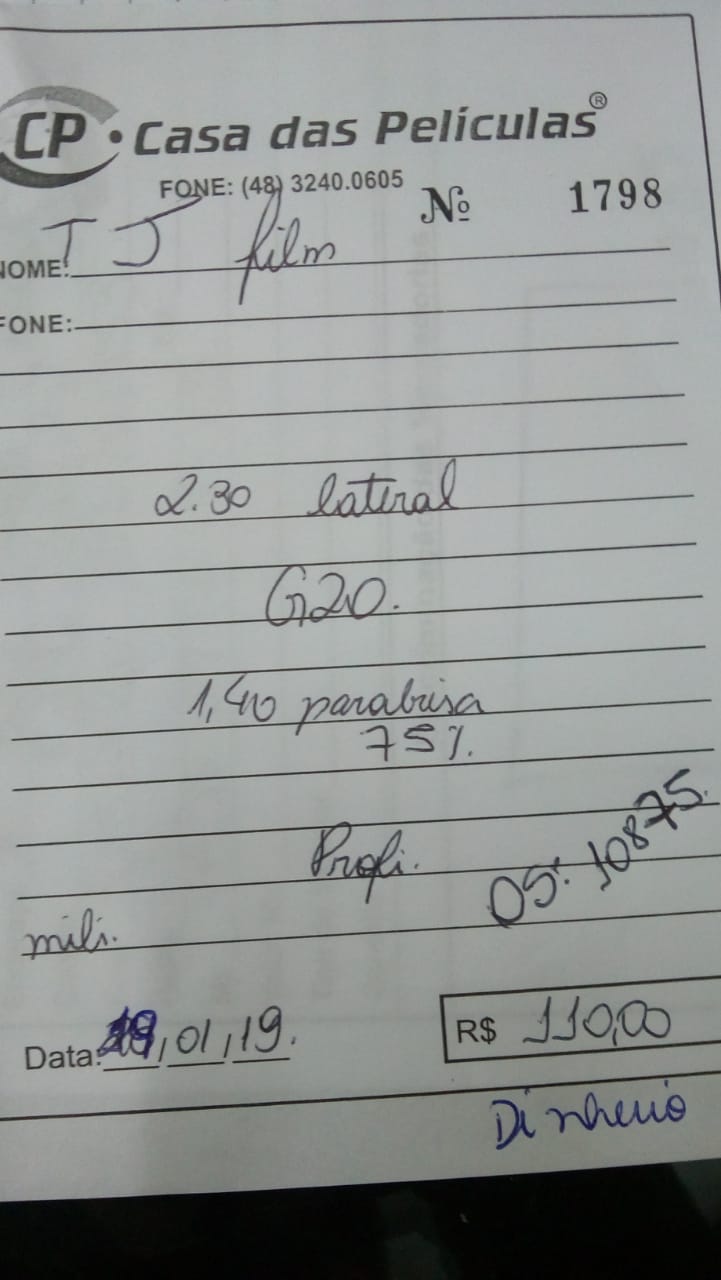 CP • Casa das Películas®
FONE: (48) 3240.0605
Nº 1798
NOME: TJ film
FONE:
2.30 lateral
G20.
1,40 parabrisa
75%.
Profi.
OS: 10875.
mili.
Data: , 01, 19.
R$ 110,00
Dinheiro